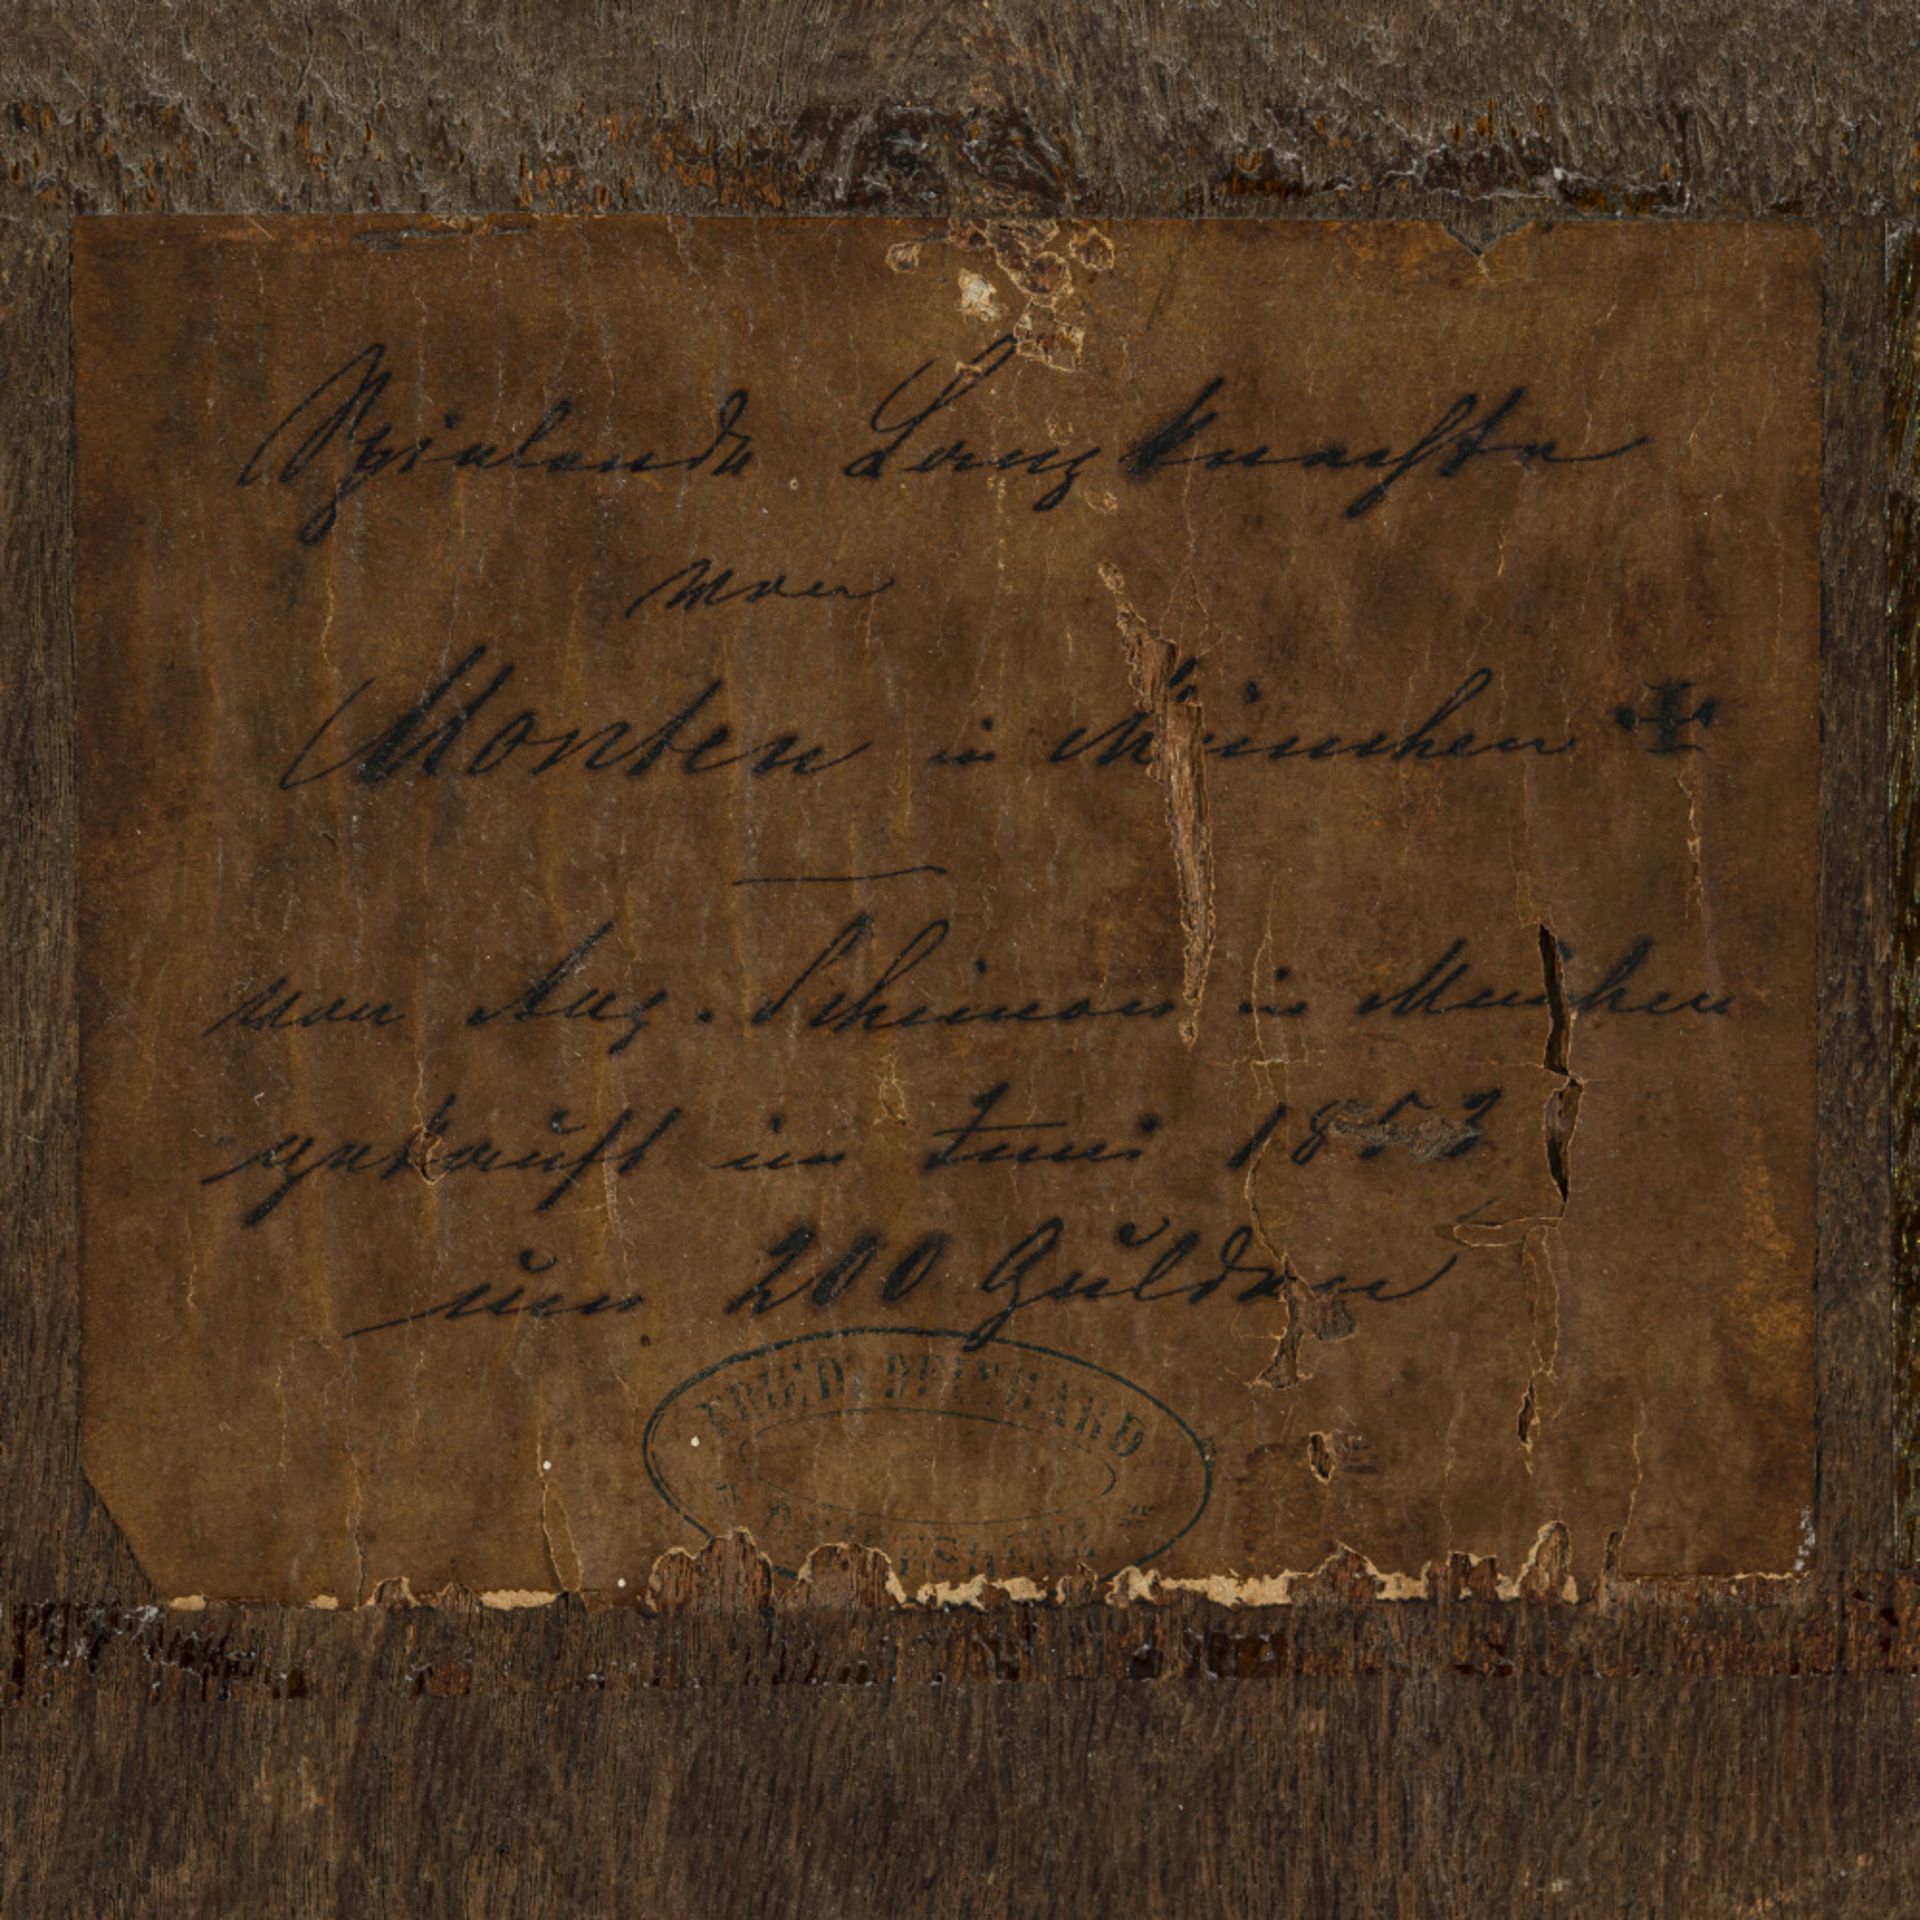 Spielende Lanzknechte
von
Monten in München ✠
von Aug. Scheimon in München
gekauft im Juni 1853
um 200 Gulden
FRIED. REINHARD